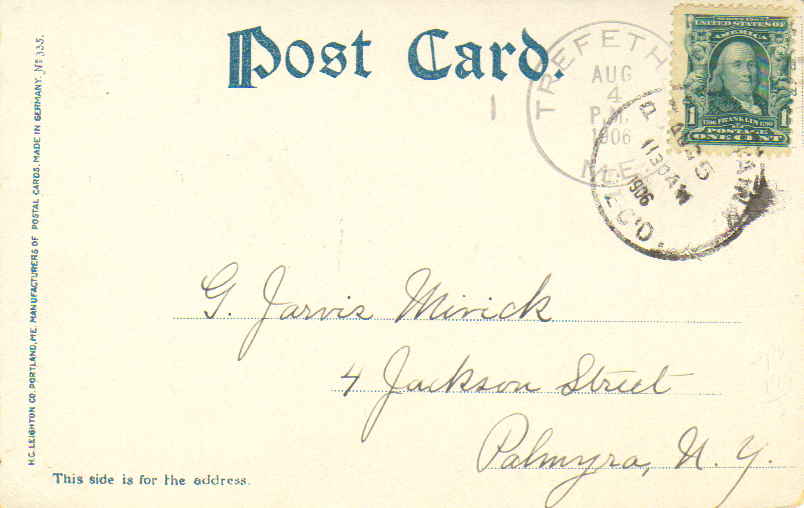 Post Card.
TREFETH
AUG
4
P.M.
1906
ME
UNITED STATES OF
AMERICA
1706 FRANKLIN 1790
1 1
POSTAGE
ONE CENT
AUG 5
1130 AM
1906
REC'D.
G. Jarvis Mirick
4 Jackson Street
Palmyra, N. Y.
This side is for the address.
H.C. LEIGHTON CO. PORTLAND, ME. MANUFACTURERS OF POSTAL CARDS. MADE IN GERMANY. No 335.